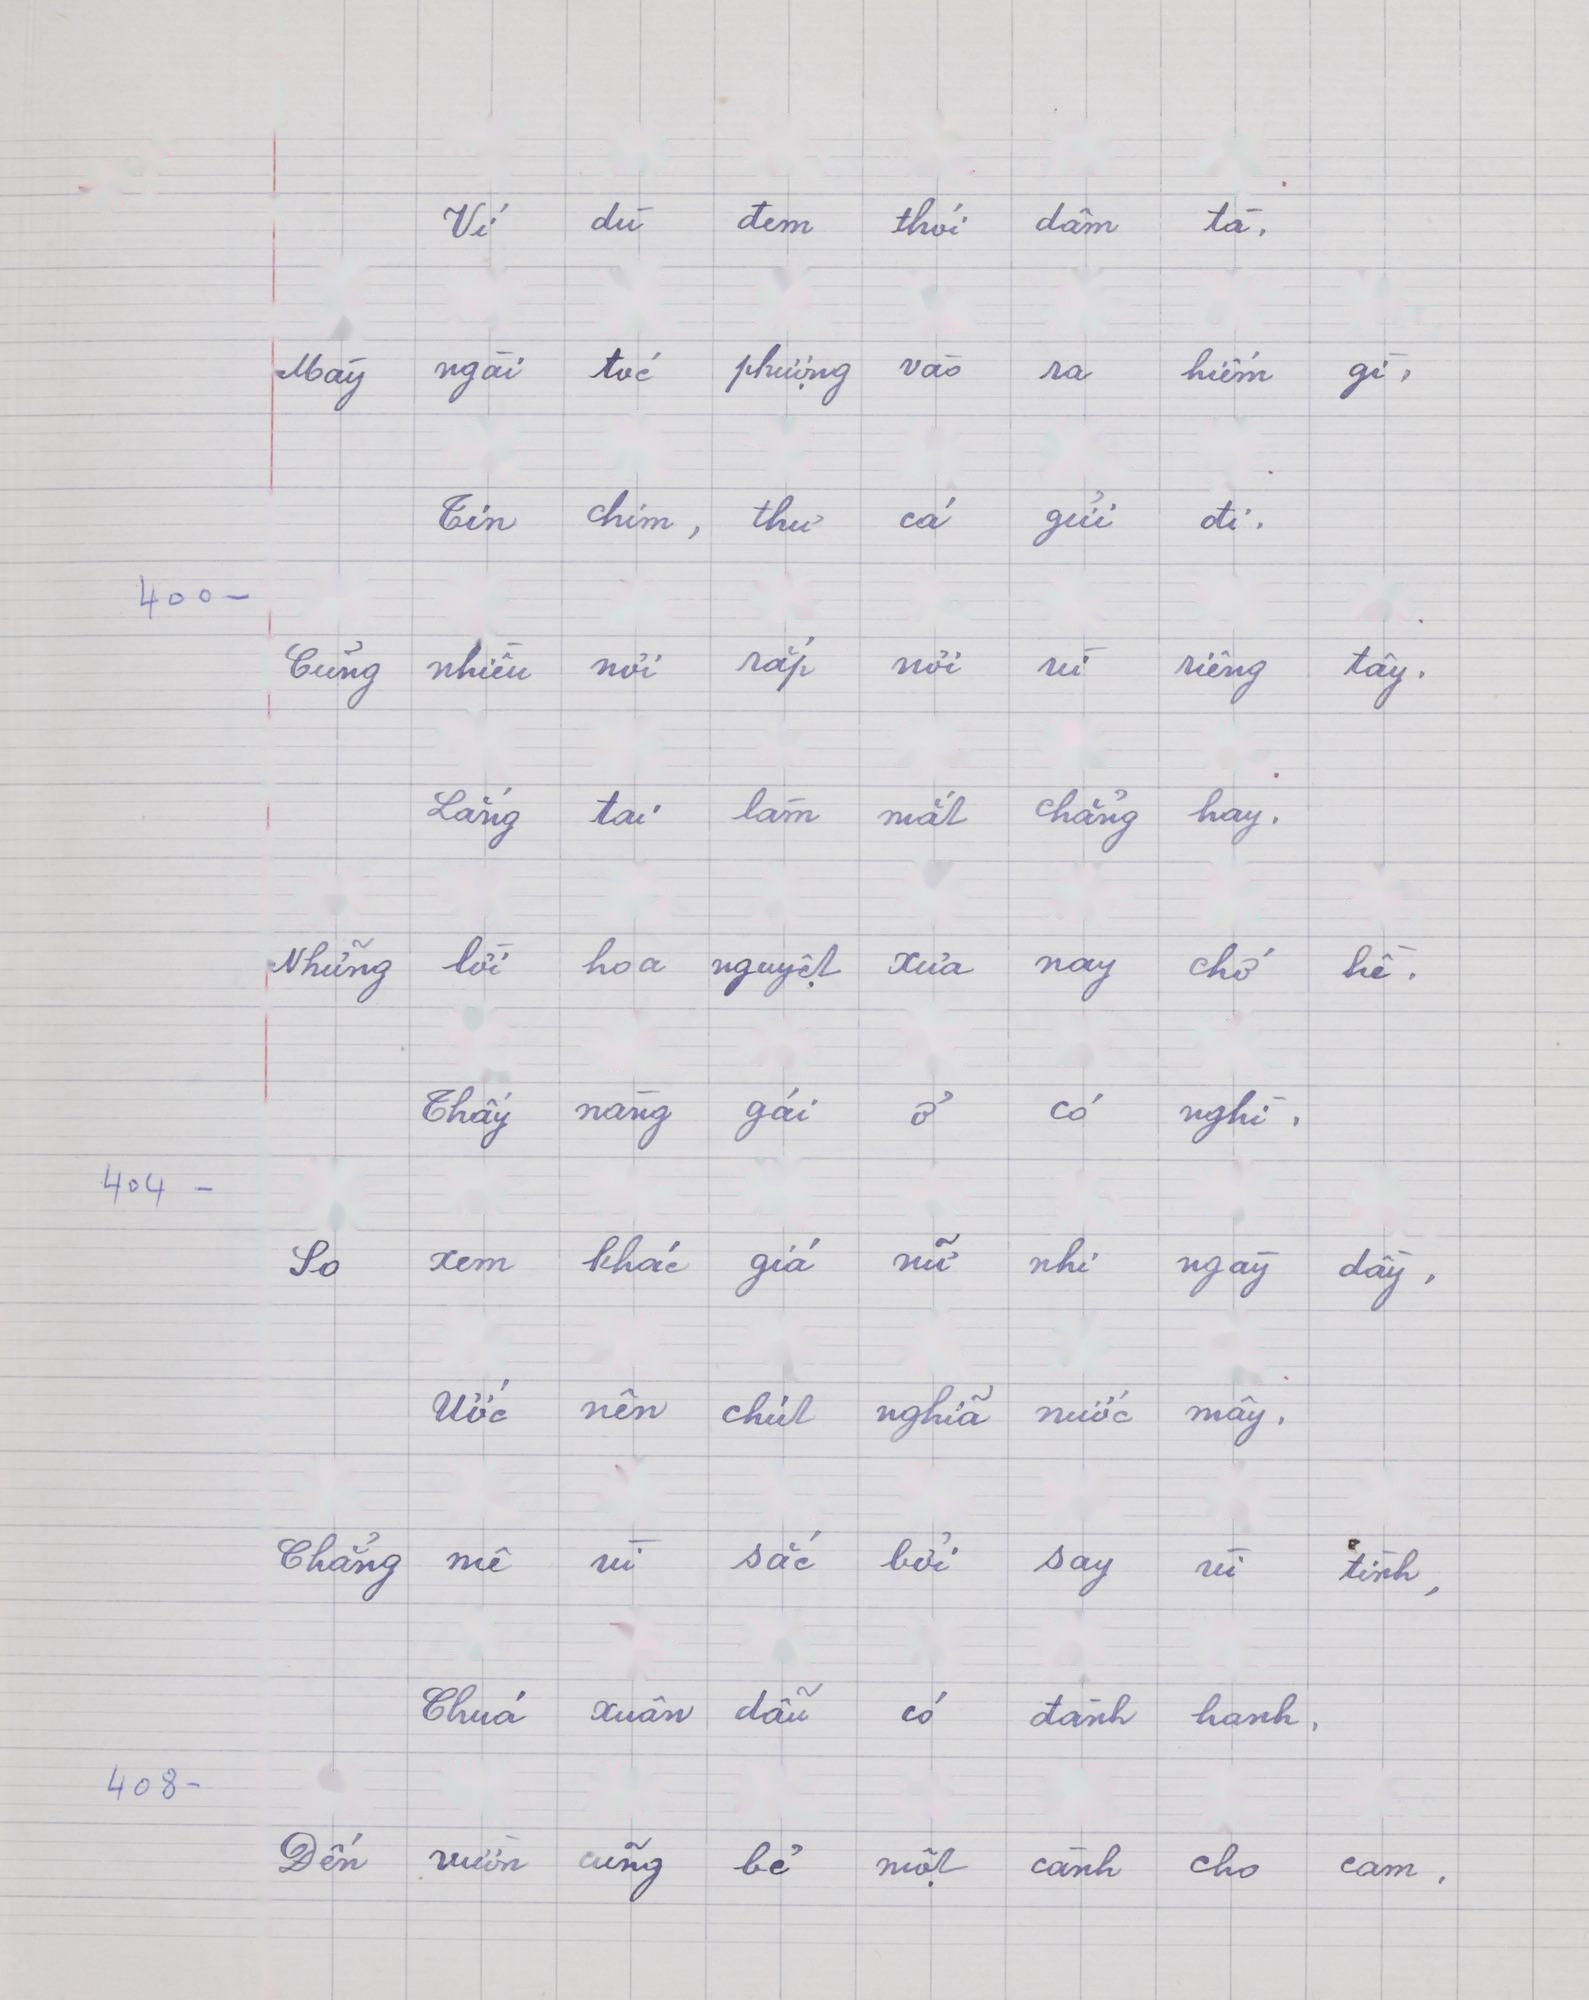 Ví dù đem thói dâm tà.
Mày ngài tóc phượng vào ra hiếm gì,
Tín chim, thư cá gửi đi.
400-
Cũng nhiều nơi rắp nỏi rù riêng tây.
Lắng tai làm mắt chẳng hay.
Những lời hoa nguyệt xưa nay chớ hề.
Thấy nàng gái ở có nghì.
404 -
So xem khác giá nữ nhi ngày dầy,
Ước nên chút nghĩa nước mây.
Chẳng mê vì sắc bởi say vì tình,
Chuá xuân dẫu có đành hanh,
408-
Đến vườn cũng bẻ một cành cho cam.